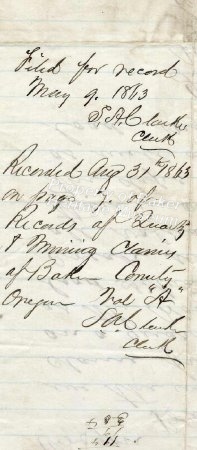 Filed for record
May 9. 1863
S.A. Clarke
Clerk
Recorded Aug 31st 1863
on page 7. of
Records of Quartz
& Mining Claims
of Baker County
Oregon Vol "A"
S.A. Clarke
Clerk